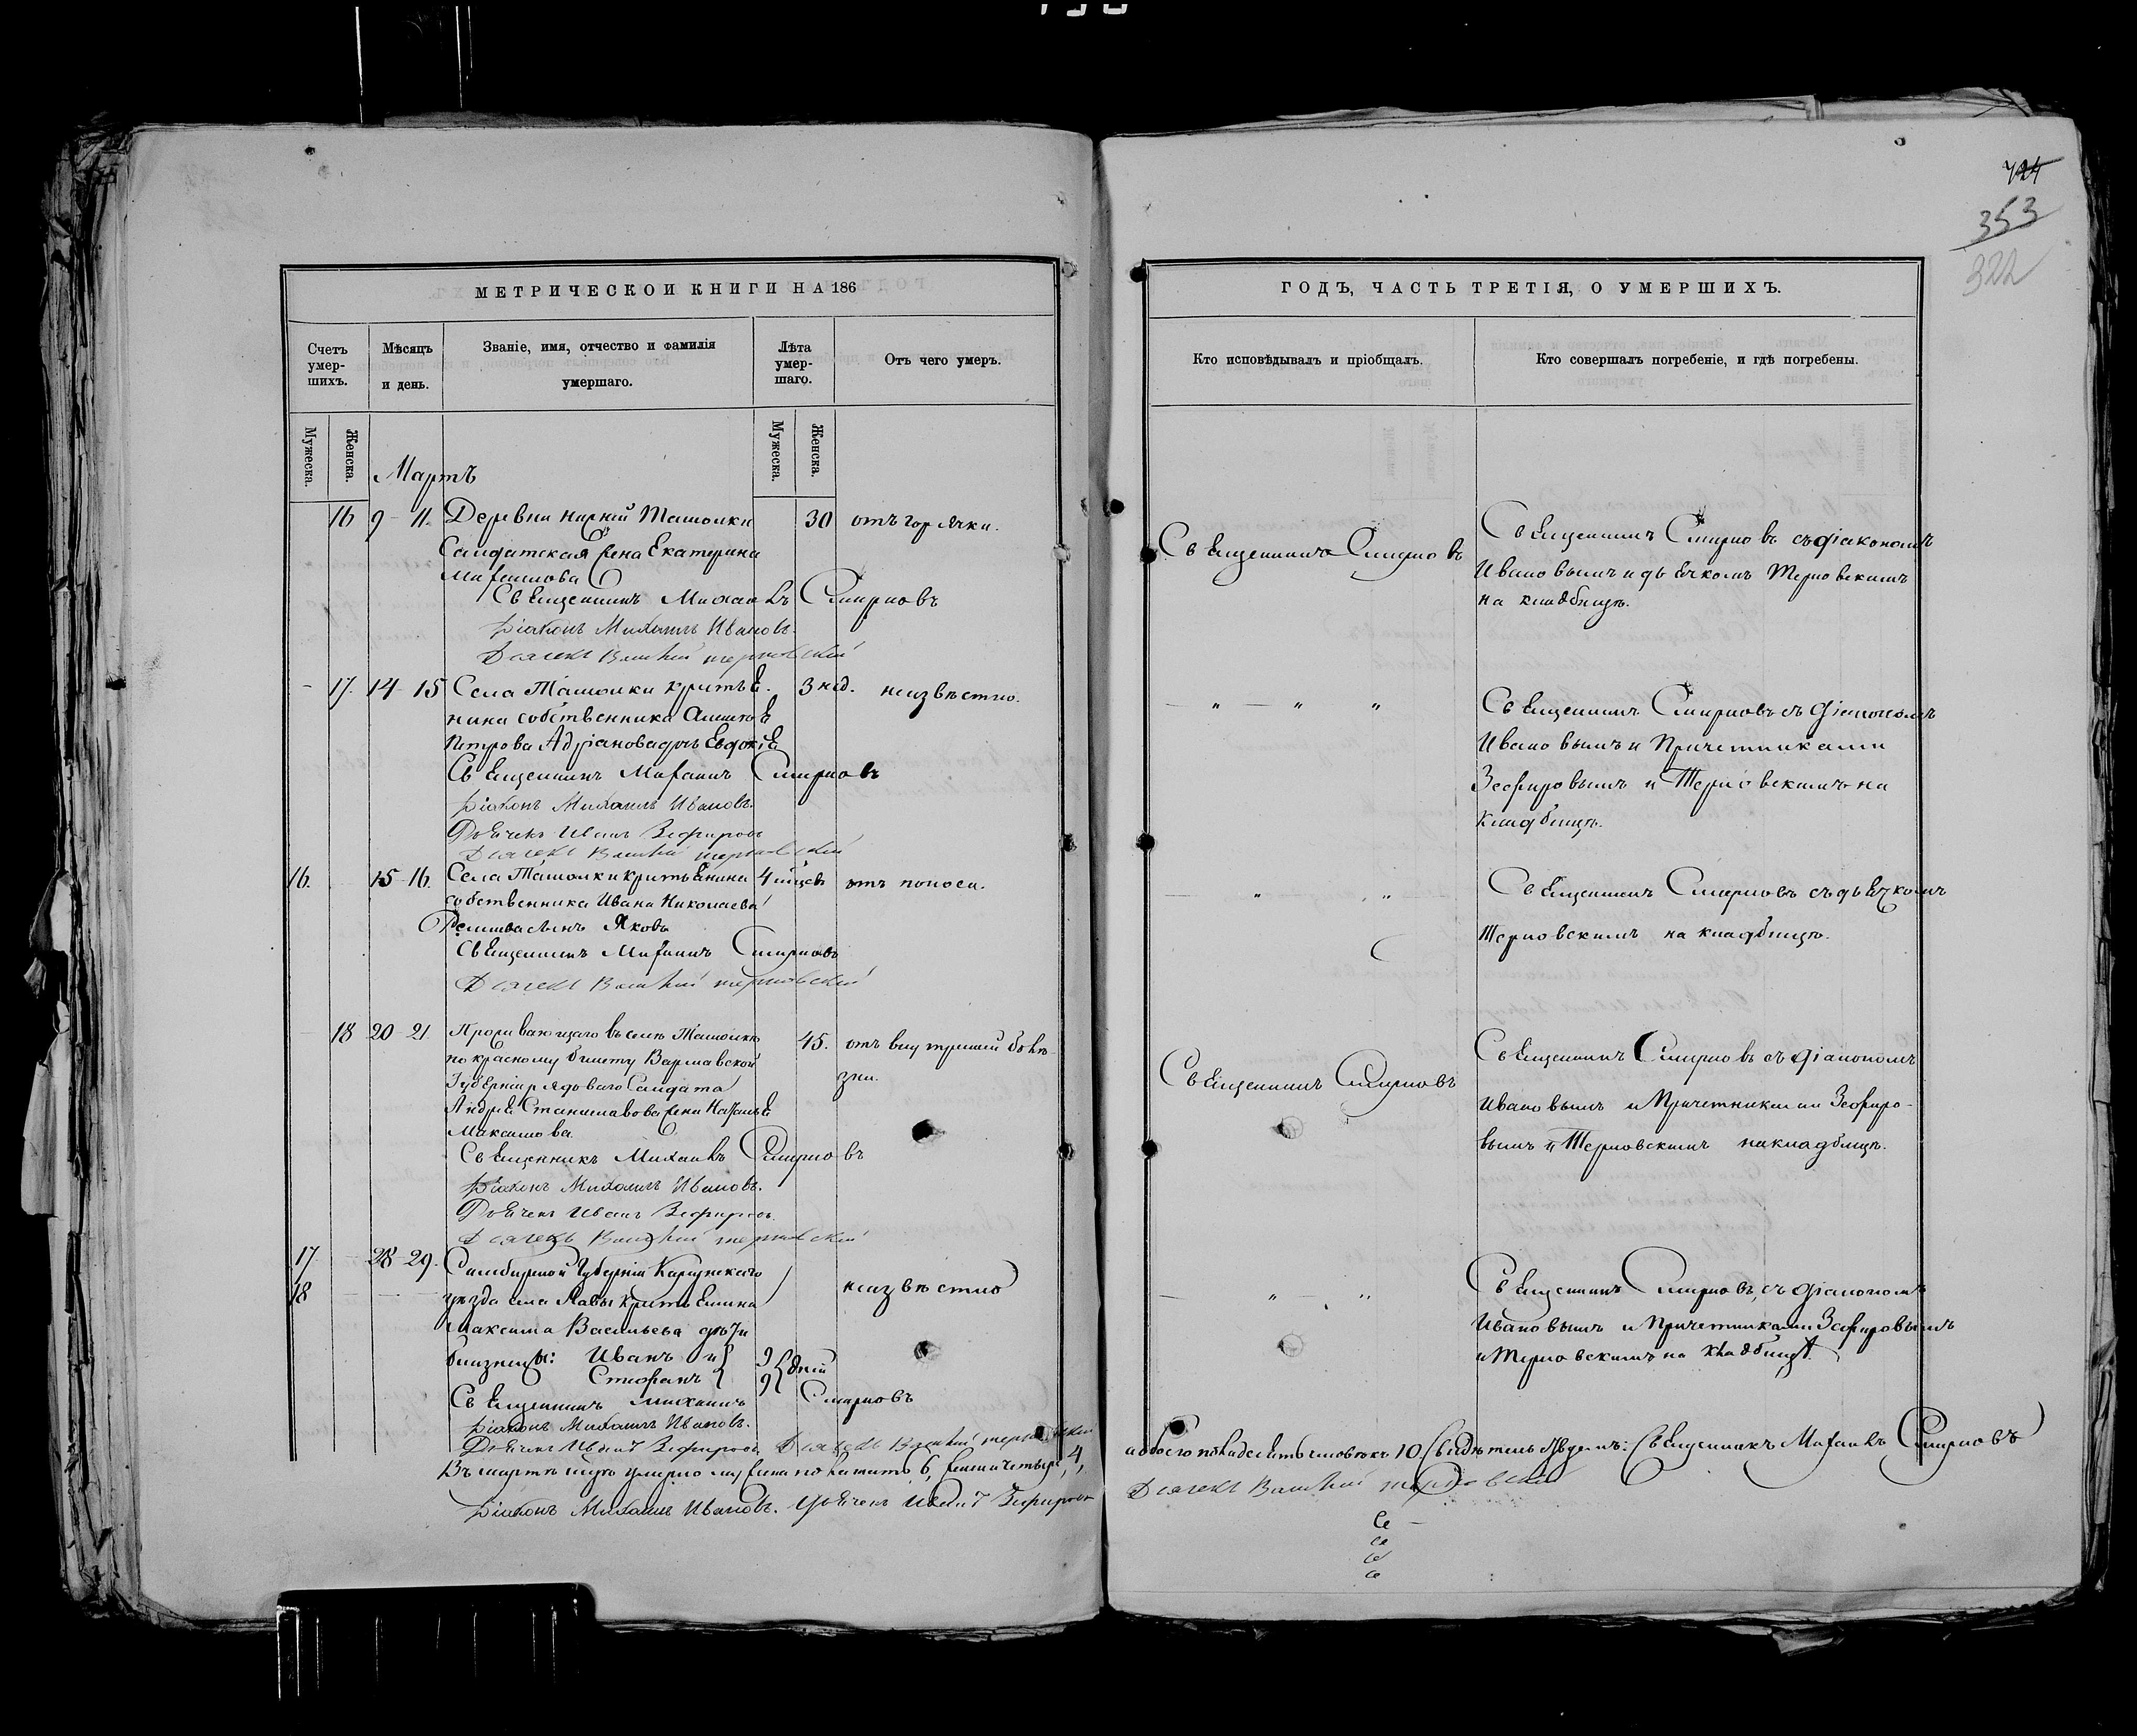 424
353
322
МЕТРИЧЕСКОЙ КНИГИ НА 186
Счетъ умер-шихъ.
Мѣсяцъ и день.
Званіе, имя, отчество и фамилія умершаго.
Лѣта умер-шаго.
Отъ чего умеръ.
Мужеска.
Женска.
Мужеска.
Женска.
Мартъ
16 9-11. Деревни Ташолки 30 отъ горячки.
Салдатская жена Екатерина
Михаилова
Священникъ Михаилъ Смирновъ
Діаконъ Михаилъ Ивановъ.
Дьячекъ Василій Терновскій
17. 14-15 Села Ташолки крестье 3 нед. неизвѣстно.
нина собственника Алексѣе
Петрова Адріанова дочь Евдокіе
Священникъ Михаилъ Смирновъ
Діаконъ Михаилъ Ивановъ.
Дьячекъ Иванъ Зефировъ
Дьячекъ Василій Терновскій
16. 15-16. Села Ташолки крестьенина 4 мѣсев отъ поноса.
собственника Ивана Николаева
сынъ Яковъ
Священникъ Михаилъ Смирновъ
Дьячекъ Василій Терновскій
18 20-21 Проживающаго въ селѣ Ташолкѣ 45. отъ внутреней болѣ-
по красному билету Варшавской зни.
Губерніи рядоваго Салдата
Андрее Станиславова жена Наталье
Максимова
Священникъ Михаилъ Смирновъ
Діаконъ Михаилъ Ивановъ.
Дьячекъ Иванъ Зефировъ.
Дьячекъ Василій Терновскій
17 28-29. Симбирской Губерніи Карсунскаго неизвѣстно
18 уѣзда села Лавы крестьенина
Максима Васильева дѣти
близнецы: Иванъ и 9 дней
Стефанъ 9
Священникъ Михаилъ Смирновъ
Діаконъ Михаилъ Ивановъ.
Дьячекъ Иванъ Зефировъ Дьячекъ Василій Терновскій
Въ мартѣ умерло мужеска пола 6, женска четыре, 4,
Діаконъ Михаилъ Ивановъ. Дьячекъ Иванъ Зефировъ
ГОДЪ, ЧАСТЬ ТРЕТІЯ, О УМЕРШИХЪ.
Кто исповѣдывалъ и пріобщалъ.
Кто совершалъ погребеніе, и гдѣ погребены.
Священникъ Смирновъ
Священникъ Смирновъ съ діакономъ
Ивановымъ и дьечкомъ Терновскимъ
на кладбищѣ.
— „ — „ „
Священникъ Смирновъ съ діакономъ
Ивановымъ и Причетниками
Зефировымъ и Терновскимъ на
кладбищѣ.
— „ — „
Священникъ Смирновъ съ дьечкомъ
Терновскимъ на кладбищѣ.
Священникъ Смирновъ
Священникъ Смирновъ съ діакономъ
Ивановымъ и Причетниками Зефиро-
вымъ и Терновскимъ на кладбищѣ.
— „ — „
Священникъ Смирновъ, съ діакономъ
Ивановымъ и Причетниками Зефировымъ
и Терновскимъ на кладбищѣ.
а обоего пола десеть человѣкъ 10. Священникъ Михаилъ Смирновъ
Дьячекъ Василій Терновскій